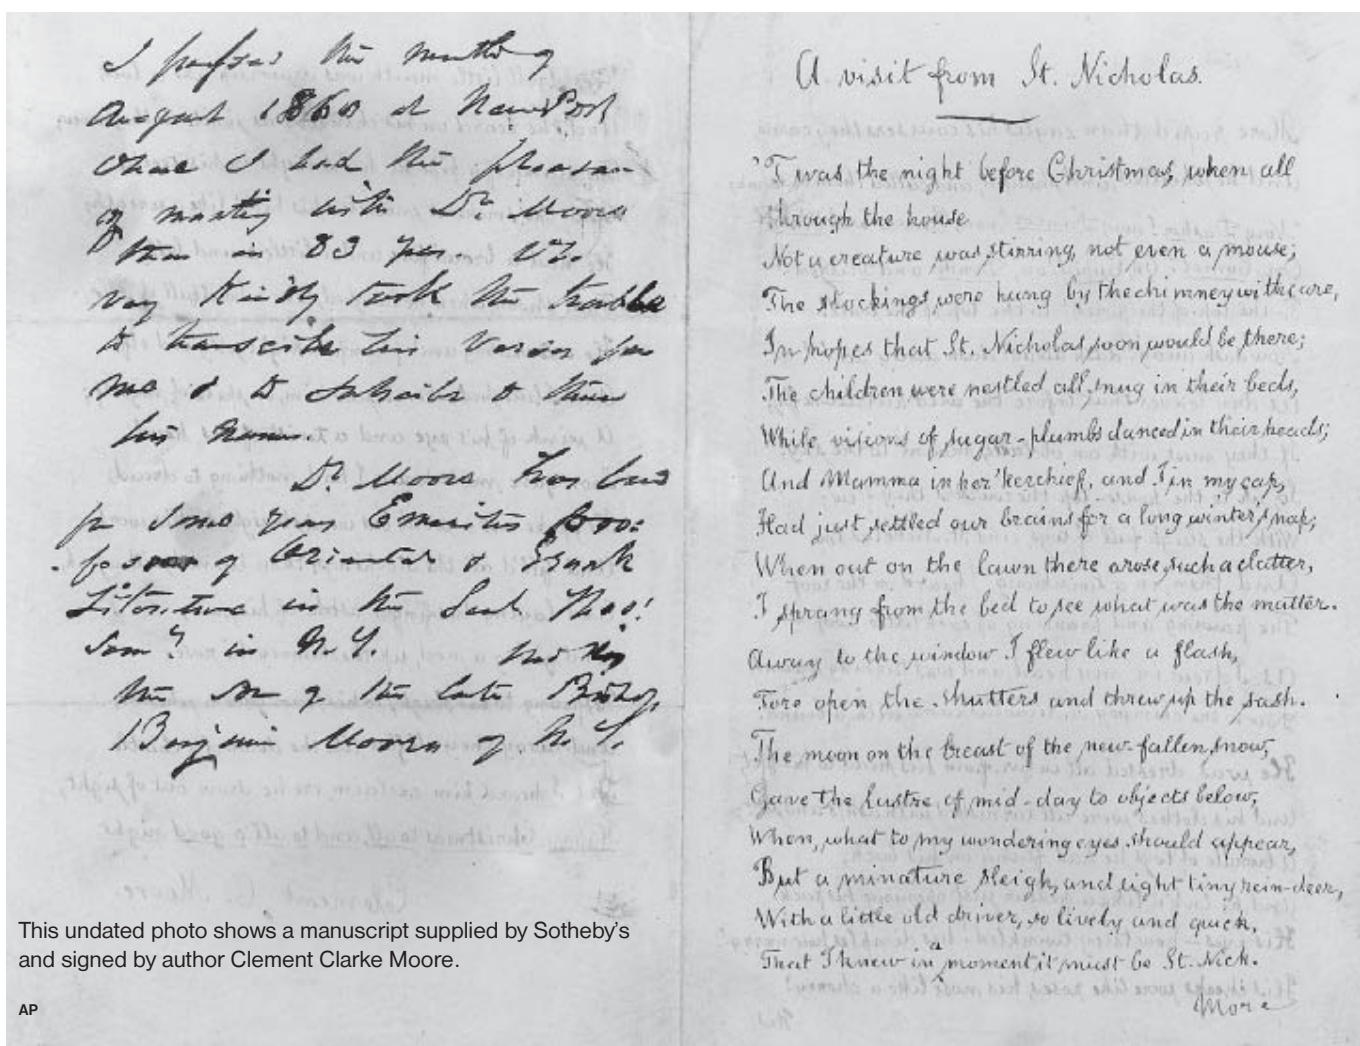 I passed the month of
August 1860 at NewPort
where I had the pleasure
of meeting with Dr. Moore
then in 83 year. He
very kindly took the trouble
to transcribe his verses for
me & to subscribe to them
his name.
Dr. Moore has been
for some years Emeritus Pro=
fessor of Oriental & Greek
Literature in the Theol:
in N.Y.
the son of the late Bishop
Benjamin Moore of N.Y.
This undated photo shows a manuscript supplied by Sotheby's
and signed by author Clement Clarke Moore.
AP
A visit from St. Nicholas.
'Twas the night before Christmas, when all
through the house
Not a creature was stirring, not even a mouse;
The stockings were hung by the chimney with care,
In hopes that St. Nicholas soon would be there;
The children were nestled all snug in their beds,
While visions of sugar-plumbs danced in their heads;
And Mamma in her 'kerchief, and I in my cap,
Had just settled our brains for a long winter's nap;
When out on the lawn there arose such a clatter,
I sprang from the bed to see what was the matter.
Away to the window I flew like a flash,
Tore open the shutters and threw up the sash.
The moon on the breast of the new-fallen snow,
Gave the lustre of mid-day to objects below,
When, what to my wondering eyes should appear,
But a minature sleigh, and eight tiny rein-deer,
With a little old driver, so lively and quick,
That I knew in a moment it must be St. Nick.
More